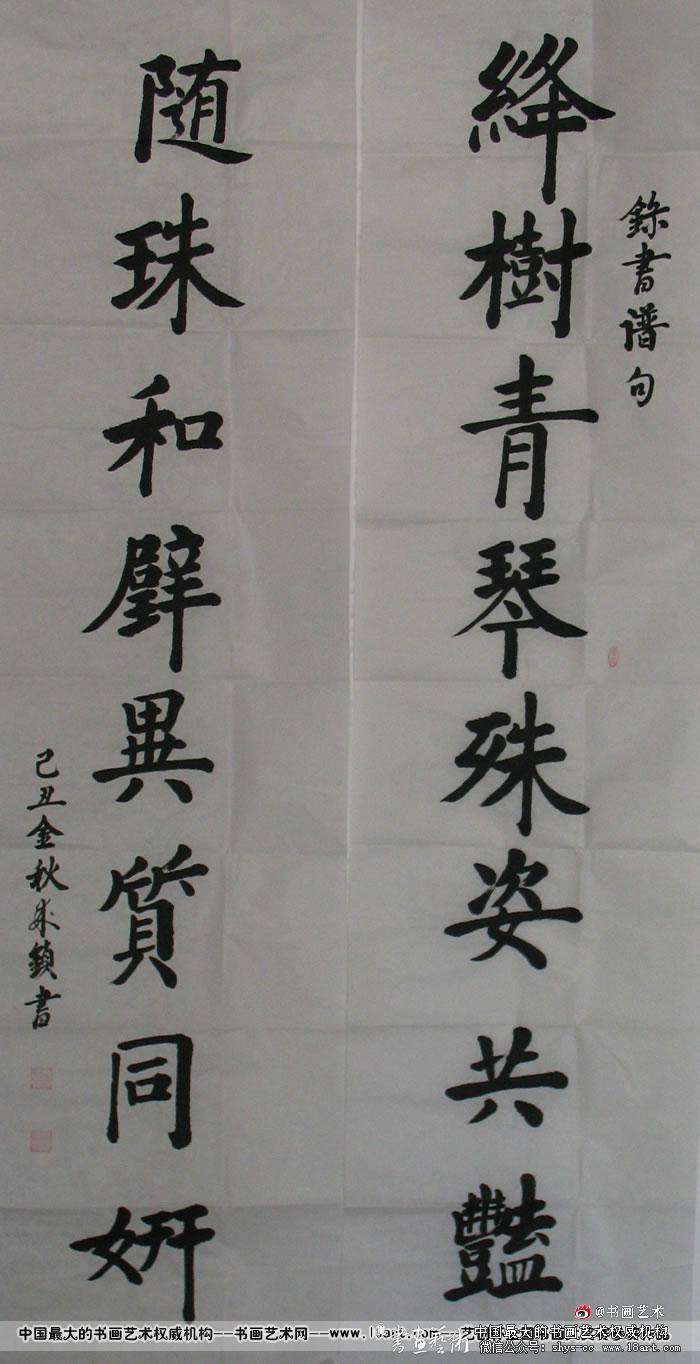 錄書谱句
絳樹青琴殊姿共豔
随珠和璧異質同妍
己丑金秋成鎖書
@书画艺术
中国最大的书画艺术权威机构---书画艺术网---www.18art.com
中国最大的书画艺术权威机构
微信公众号：shys-cc www.18art.com